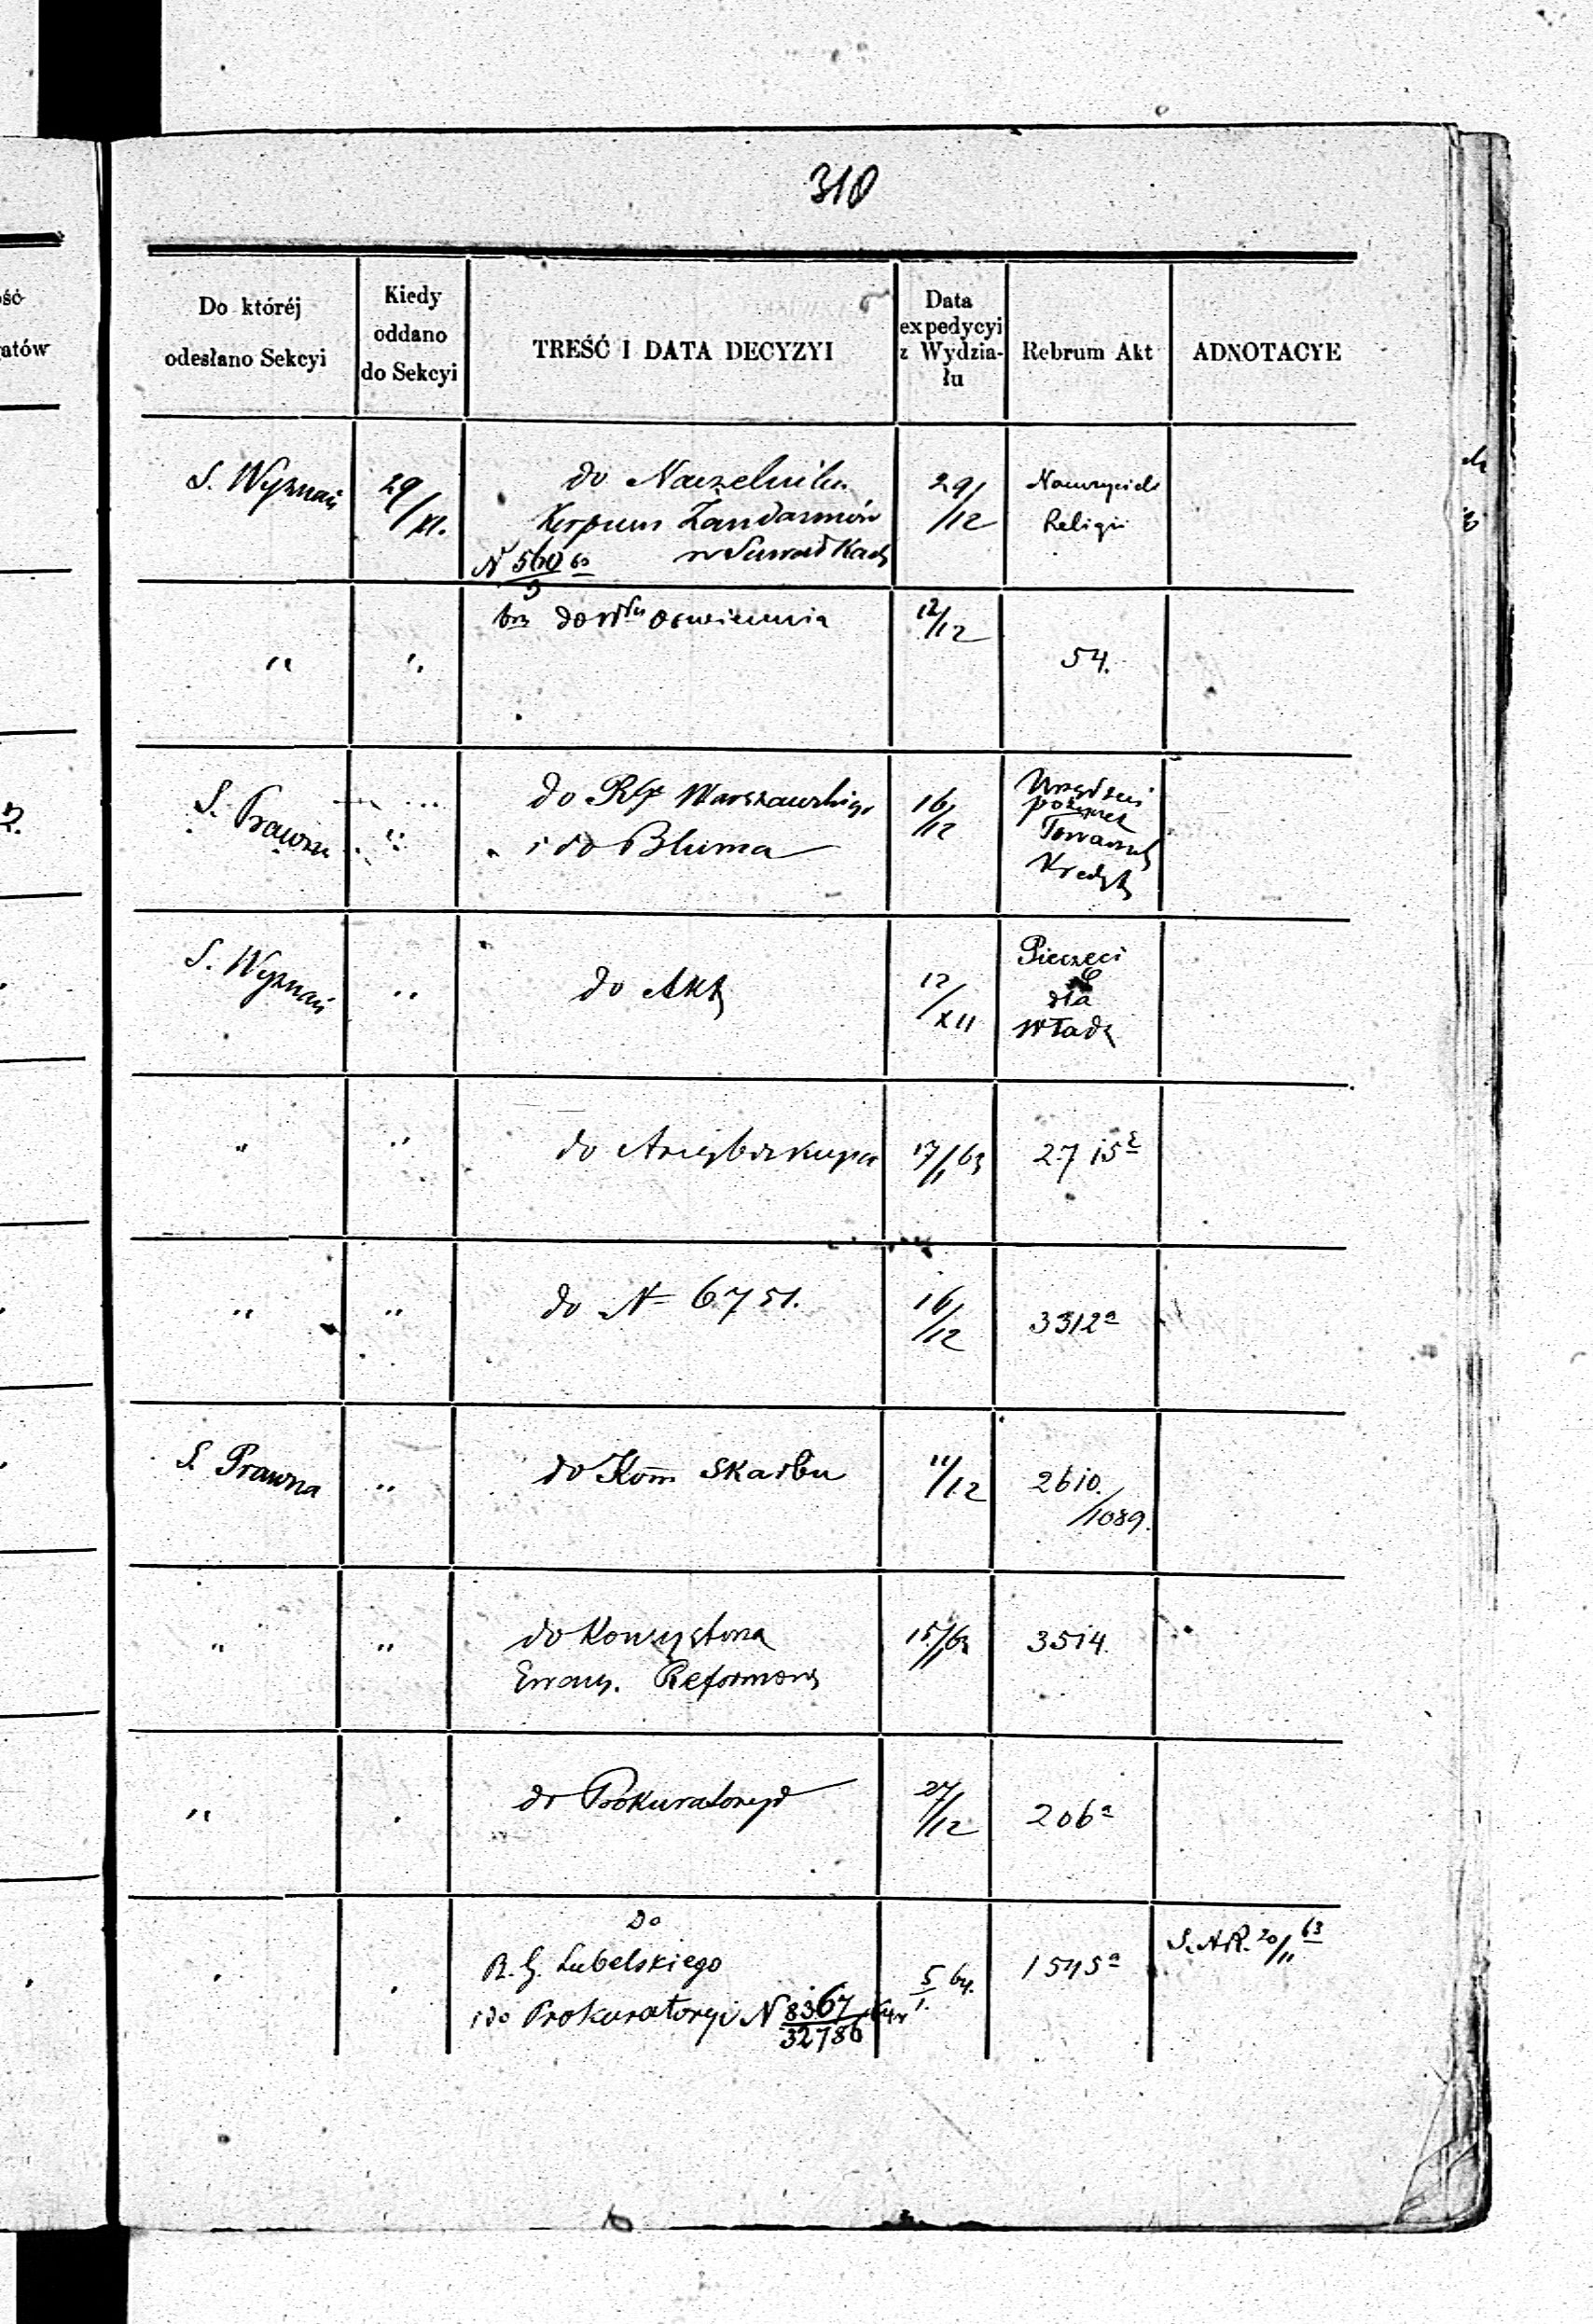 310
Do któréj
odesłano Sekcyi
Kiedy
oddano
do Sekcyi
TREŚĆ I DATA DECYZYI
Data
expedycyi
z Wydzia-
łu
Rebrum Akt
ADNOTACYE
ość
atów
S. Wyznań
29/XI.
do Naczelnika
Korpusu Żandarmów
w Suwałkach
N 560
29/12
Nauczyciele
Religii
" "
do Oswiecenia
12/12
54.
S. Prawna
"
do Warszawskiego
i do Bluma
16/12
Pożyczek
Towarzys
Kredyt
S. Wyznań
"
do Akt
12/XII
Pieczęci
dla
Władz
" "
do Arcybiskupa
17/1 63
2715
" "
do N 6751.
16/12
3312a
S. Prawna
"
do Kom Skarbu
11/12
2610./1089.
" "
do Konsystorza
Ewang. Reformow
15/1 63
3514.
"
do Prokuratoryi
27/12
206a
do
R. G. Lubelskiego
i do Prokuratoryi N 8367/32786
5/1. 64.
1545a
S. AR. 20/11 63